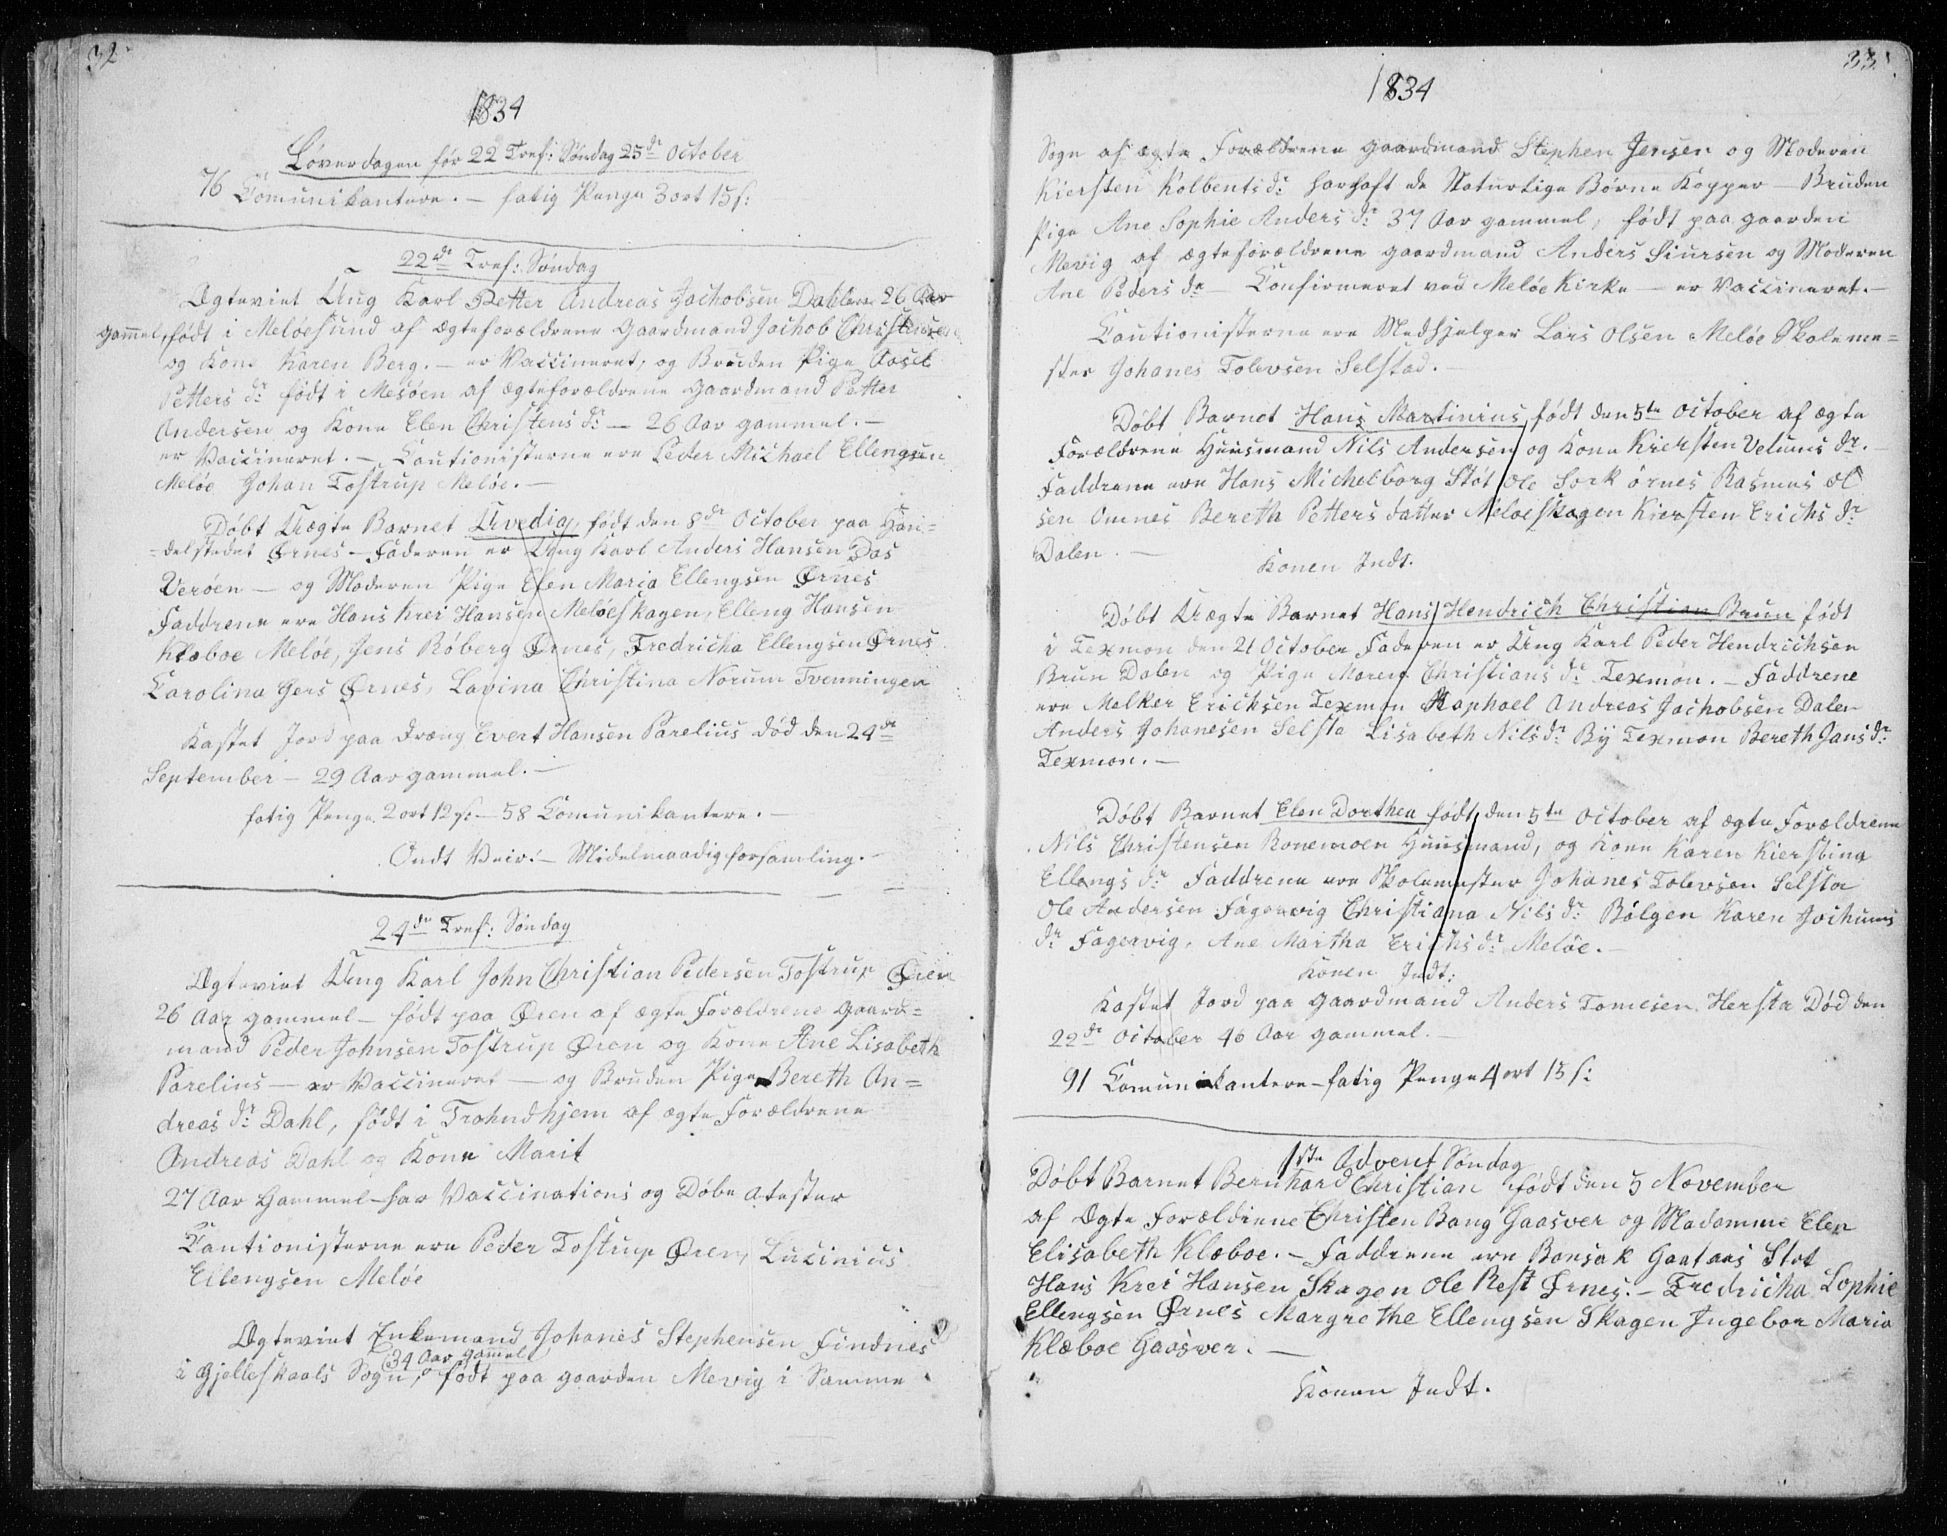 32
1834
Løverdagen før 22 Tref: Søndag 25de October
76 Comunikantere. — fatig Penge 3 ort 15 s:
22de Tref: Søndag
Ægteviet Ung Karl Petter Andreas Jachobsen Dahlen 26 Aar
gammel, født i Meløesund af ægteforældrene Gaardmand Jachob Christensen
og Kone Karen Berg. — er Vaccineret, og Bruden Pige Aasel
Petters dr født i Mesøen af ægteforældrene Gaardmand Petter
Andersen og Kone Elen Christens dr — 26 Aar gammel. —
er Vaccineret. — Cautionisterne ere Peder Michael Ellengsen
Meløe Johan Tostrup Meløe. —
Døbt Uægte Barnet Arvedia, født den 8de October paa Han-
-delstedet Ørnes — Faderen er Ung Karl Anders Hansen Das
Verøen — og Moderen Pige Elen Maria Ellengsen Ørnes
Faddrene ere Hans Krei Hansen Meløeskagen, Elleng Hansen
Kloboe Meløe, Jens Røberg Ørnes, Fredricha Ellengsen Ørnes
Carolina Gers Ørnes, Lavina Christina Norum Tvenningen
Kastet Jord paa Dræng Evert Hansen Parelius Død den 24de
September — 29 Aar gammel. —
fatig Penge 2 ort 12 s: — 58 Comunikantere. —
Ondt Veir. — Midelmaadig forsamling. —
24de Tref: Søndag
Ægteviet Ung Karl John Christian Pedersen Tostrup Øren
26 Aar gammel — født paa Øren af ægte Forældrene Gaard=
mand Peder Johnsen Tostrup Øren og Kone Ane Lisabeth
Parelius — er Vaccineret — og Bruden Pige Bereth An=
dreas dr Dahl, født i Trohndhjem af ægte Forældrene
Andreas Dahl og Kone Marit
27 Aar Gammel — har Vaccinations og Døbe atester
Cautionisterne ere Peder Tostrup Øren, Lucinius
Ellengsen Meløe
Ægteviet Enkemand Johanes Stephensen Findnes
34 Aar gammel
i Gjelleskaals Sogn, født paa gaarden Mevig i Samme
33
1834
Sogn af ægte Forældrene gaardmand Stephen Jensen og Moderen
Kiersten Kolbents dr har haft de Naturlige Børne Kopper — Bruden
Pige Ane Sophie Anders dr 37 Aar gammel, født paa gaarden
Mevig af ægteforældrene gaardmand Anders Siursen og Moderen
Ane Peders dr — Confirmeret ved Meløe Kirke — er Vaccineret. —
Cautionisterne ere Medhjelper Lars Olsen Meløe Skoleme=
ster Johanes Tolevsen Selstad. —
Døbt Barnet Hans Martinius født den 5te October af ægte
Forældrene Huusmand Nils Andersen og Kone Kiersten Velums dr. —
Faddrene ere Hans Michelborg Støt Ole Sørk ørnes Rasmus Ol
sen Omnes Bereth Petters datter Meløeskagen Kiersten Erichs dr
Dalen. —
Konen Indt.
Døbt Uægte Barnet Hans Hendrich Christian Brun født
i Texmon den 21 October Faderen er Ung Karl Peder Hendrichsen
Brun Dalen og Pige Maren Christians dr Texmon. — Faddrene
ere Melker Erichsen Texmon Raphael Andreas Jachobsen Dalen
Anders Johanesen Selsta Lisabeth Nils dr By Texmon Bereth Jans dr
Texmon. —
Døbt Barnet Elen Dorthea født den 5te October af ægte Forældrene
Nils Christensen Bonemoen Huusmand, og Kone Karen Kierstina
Ellengs dr Faddrene ere Skolemester Johanes Tolevsen Selsta
Ole Andersen Fagervig Christiana Nils dr Bølgen Karen Jochums
dr Fagervig, Ane Martha Erichs dr Meløe. —
Konen Indt:
Kastet Jord paa Gaardmand Anders Tomesen Hersta Død den
22de October 40 Aar gammel. —
91 Comunikantere — fatig Penge 4 ort 15 s:
1ste Advent Søndag
Døbt Barnet Bernhard Christian født den 5 November
af Ægte Forældrene Christen Bang Gaasver og Madamme Elen
Elisabeth Klæboe. — Faddrene ere Bonsak Støt
Hans Krei Hansen Skagen Ole Rest Ørnes. — Fredricha Sophie
Ellengsen Ørnes Margrethe Ellengsen Skagen Ingebor Maria
Klæboe Gaasver. —
Konen Indt.